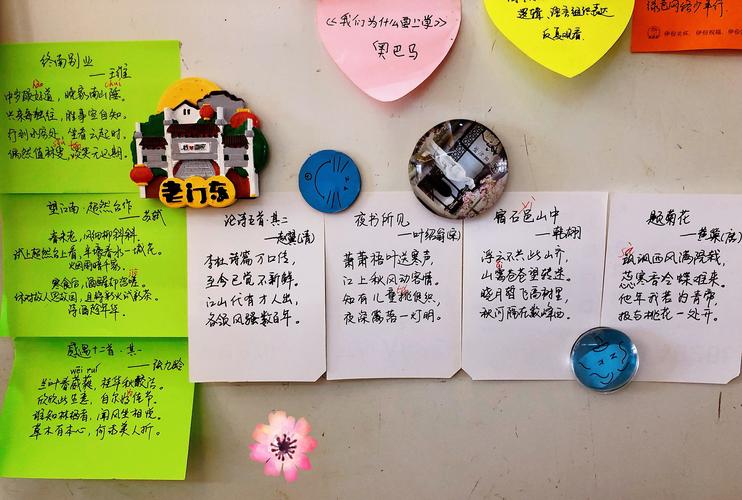 《我们为什么要上学》
奥巴马
逻辑,语言组织表达
绿色网络少年行。
终南别业
——王维
chuí
中岁颇好道,晚家南山陲。
兴来每独往,胜事空自知。
行到水穷处,坐看云起时。
偶然值林叟,谈笑无还期。
老门东
望江南·超然台作
——苏轼
春未老,风细柳斜斜。
试上超然台上看,半壕春水一城花。
烟雨暗千家。
寒食后,酒醒却咨嗟。
休对故人思故国,且将新火试新茶。
诗酒趁年华。
感遇十二首·其一
——张九龄
wēi ruí
兰叶春葳蕤,桂华秋皎洁。
欣欣此生意,自尔为佳节。
谁知林栖者,闻风坐相悦。
草木有本心,何求美人折。
论诗五首·其二
——赵翼(清)
李杜诗篇万口传,
至今已觉不新鲜。
江山代有才人出,
各领风骚数百年。
夜书所见
——叶绍翁(宋)
萧萧梧叶送寒声,
江上秋风动客情。
知有儿童挑促织,
夜深篱落一灯明。
yì
宿石邑山中
——韩翃
浮云不共此山齐,
山霭苍苍望转迷。
晓月暂飞高树里,
秋河隔在数峰西。
题菊花
——黄巢(唐)
飒飒西风满院栽,
蕊寒香冷蝶难来。
他年我若为青帝,
报与桃花一处开。